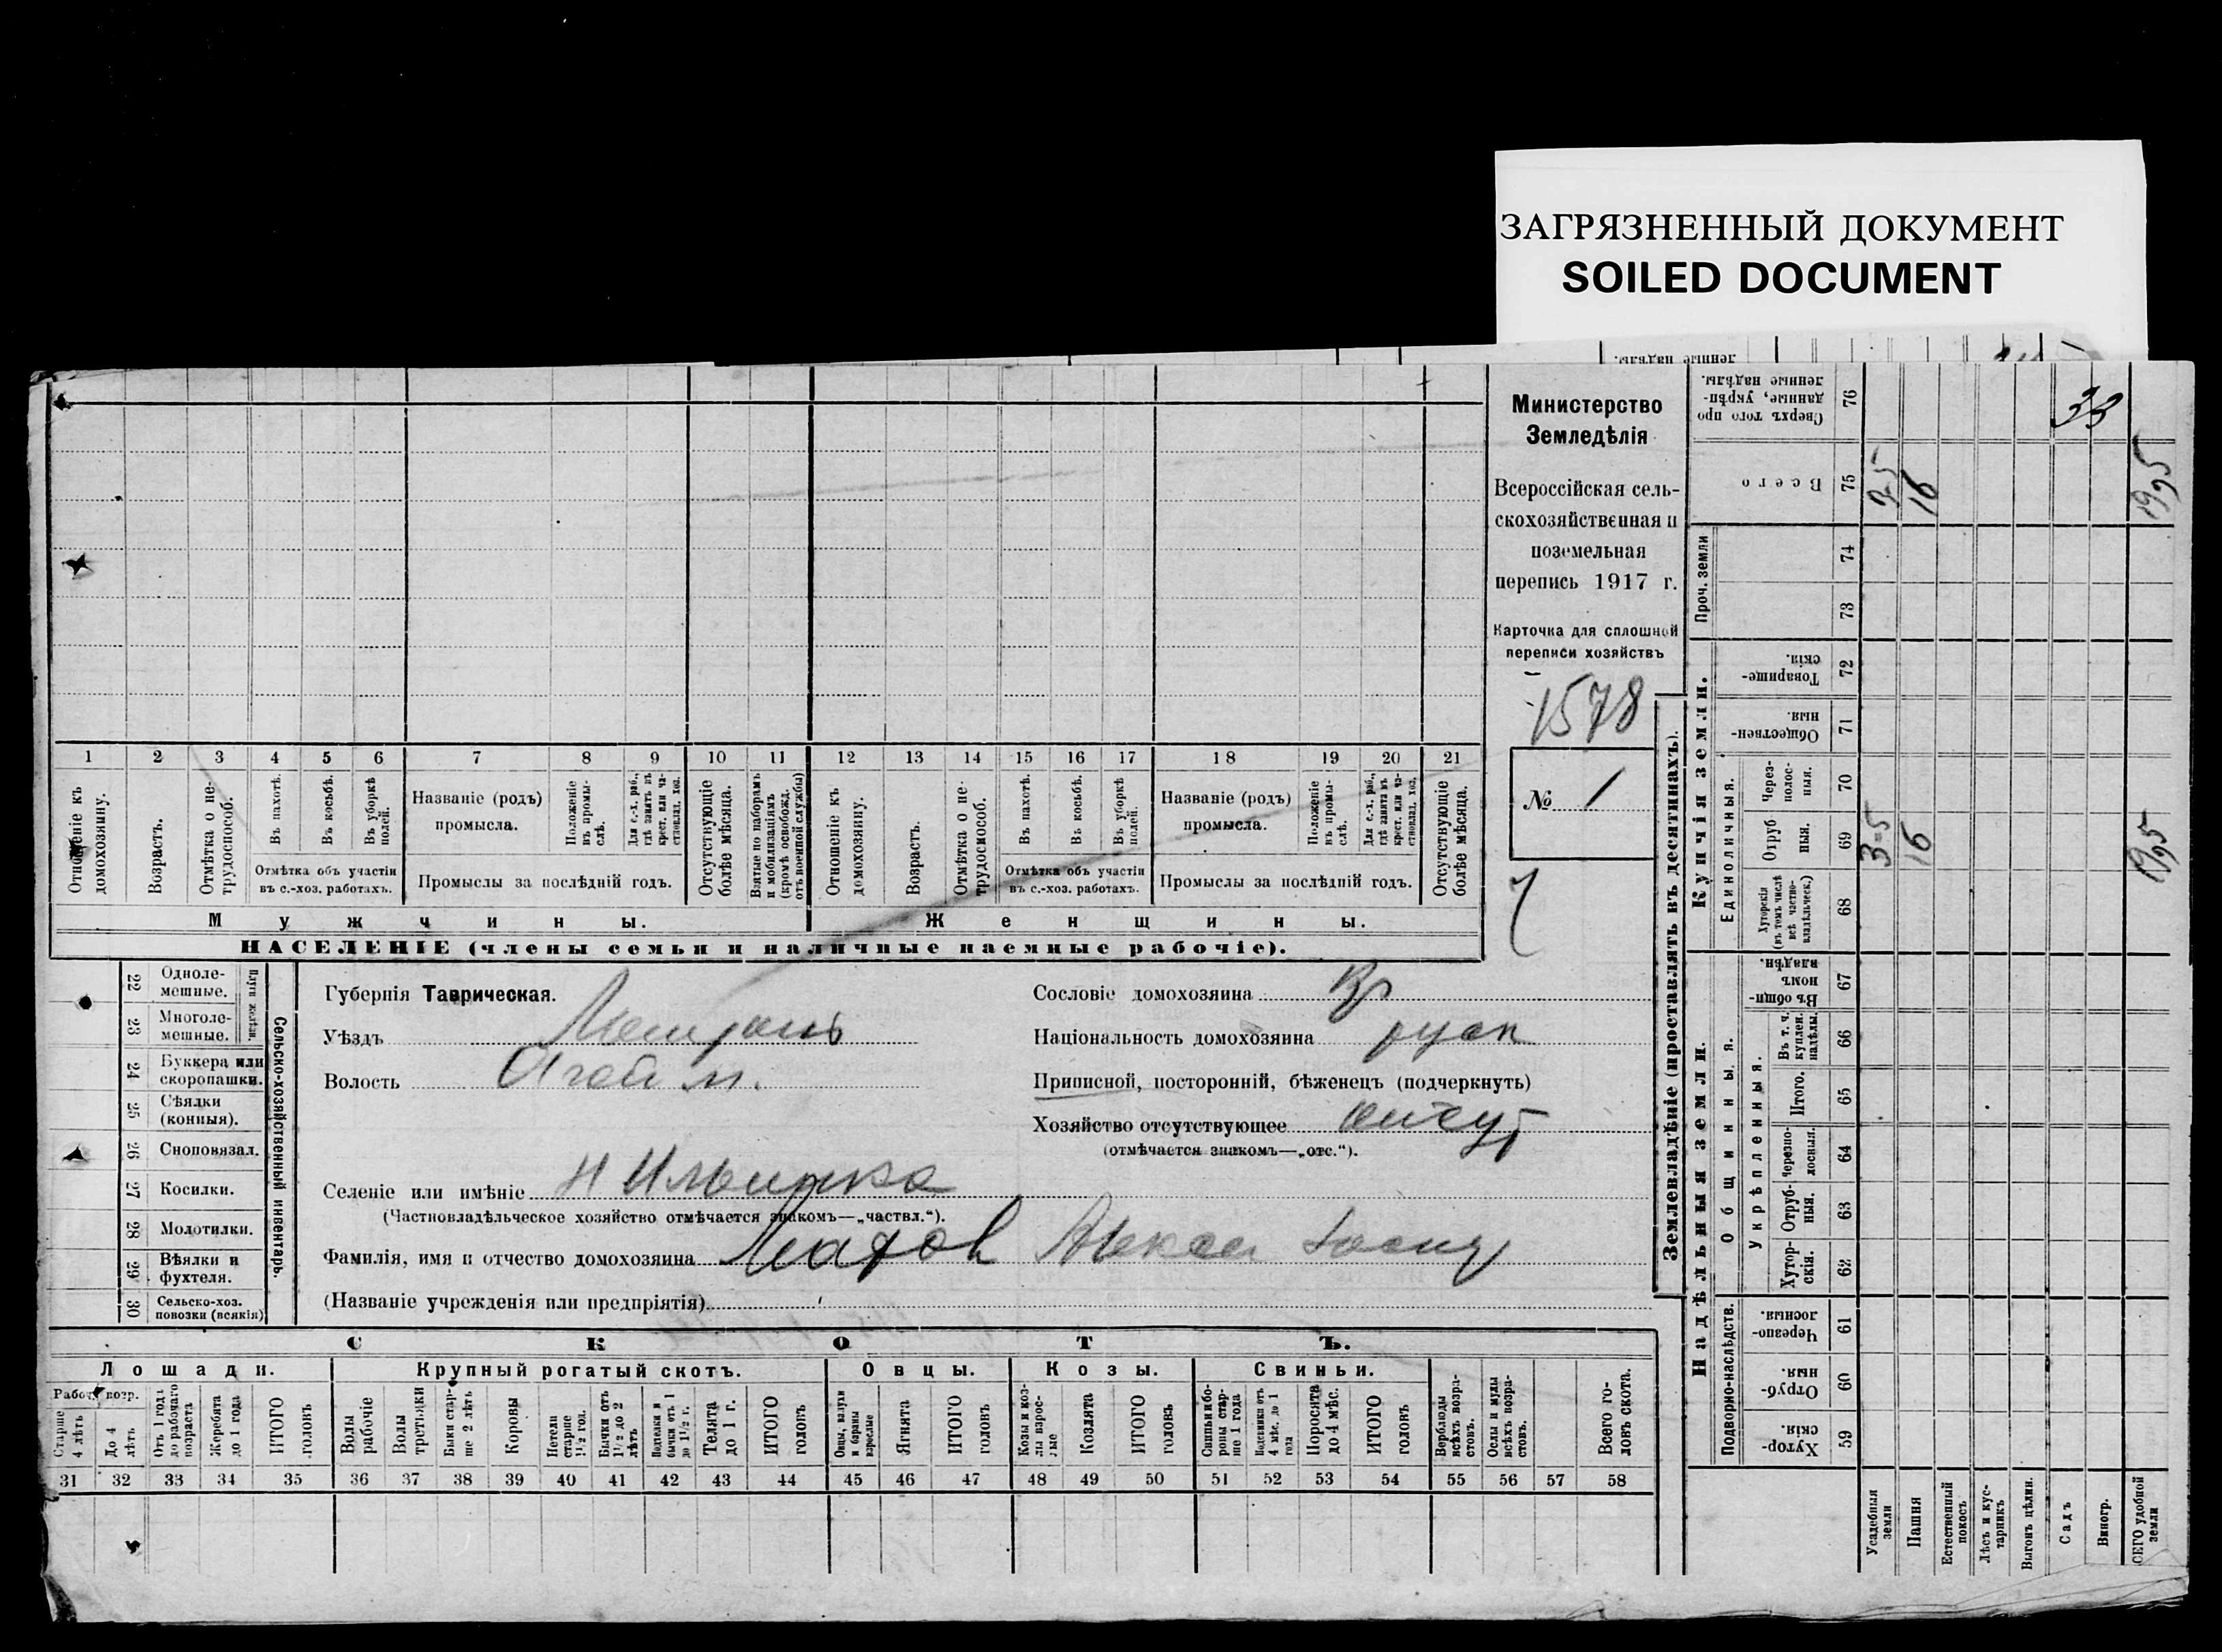 ЗАГРЯЗНЕННЫЙ ДОКУМЕНТ
SOILED DOCUMENT
Министерство
Земледѣлія
Всероссійская сель-
скохозяйственная и
поземельная
перепись 1917 г.
Карточка для сплошной
переписи хозяйствъ
1578
№ 1
1 2 3 4 5 6 7 8 9 10 11 12 13 14 15 16 17 18 19 20 21
Отношеніе къ домохозяину.
Возрастъ.
Отмѣтка о не-трудоспособ.
Въ пахотѣ.
Въ косьбѣ.
Въ уборкѣ полей.
Отмѣтка объ участіи
въ с.-хоз. работахъ.
Названіе (родъ)
промысла.
Положеніе въ промы-слѣ.
Для с.-х. раб., гдѣ занятъ въ крест. или ча-стновлад. хоз.
Промыслы за послѣдній годъ.
Отсутствующіе болѣе мѣсяца.
Взятые по наборамъ и мобилизаціямъ (кромѣ освобожд. отъ военной службы)
Отношеніе къ домохозяину.
Возрастъ.
Отмѣтка о не-трудоспособ.
Въ пахотѣ.
Въ косьбѣ.
Въ уборкѣ полей.
Отмѣтка объ участіи
въ с.-хоз. работахъ.
Названіе (родъ)
промысла.
Положеніе въ промы-слѣ.
Для с.-х. раб., гдѣ занята въ крест. или ча-стновлад. хоз.
Промыслы за послѣдній годъ.
Отсутствующіе болѣе мѣсяца.
Мужчины. Женщины.
НАСЕЛЕНІЕ (члены семьи и наличные наемные рабочіе).
Сельско-хозяйственный инвентарь.
Плуги желѣзн.
22 Одноле-мешные.
23 Многоле-мешные.
24 Буккера или скоропашки.
25 Сѣялки (конныя).
26 Сноповязал.
27 Косилки.
28 Молотилки.
29 Вѣялки и фухтеля.
30 Сельско-хоз. повозки (всякія)
Губернія Таврическая.
Уѣздъ
Волость
Селеніе или имѣніе
(Частновладѣльческое хозяйство отмѣчается знакомъ—„частвл.“).
Фамилія, имя и отчество домохозяина
(Названіе учрежденія или предпріятія)
Сословіе домохозяина
Національность домохозяина русск
Приписной, посторонній, бѣженецъ (подчеркнуть)
Хозяйство отсутствующее
(отмѣчается знакомъ—„отс.“).
СКОТЪ.
Лошади. Крупный рогатый скотъ. Овцы. Козы. Свиньи.
Рабоч. возр.
Старше 4 лѣтъ
До 4 лѣтъ
Отъ 1 года до рабочаго возраста
Жеребята до 1 года
ИТОГО головъ
Волы рабочіе
Волы третьяки
Быки стар-ше 2 лѣтъ
Коровы
Нетели старше 1½ год.
Бычки отъ 1½ до 2 лѣтъ
Телята до 1 г.
ИТОГО головъ
Овцы, валухи и бараны взрослые
Ягнята
ИТОГО головъ
Козы и коз-лы взрос-лые
Козлята
ИТОГО головъ
Свиньи и бо-ровы стар-ше 1 года
Подсвинки отъ 4 мѣс. до 1 года
Поросята до 4 мѣс.
ИТОГО головъ
Верблюды всѣхъ возра-стовъ.
Ослы и мулы всѣхъ возра-стовъ.
Всего го-ловъ скота.
31 32 33 34 35 36 37 38 39 40 41 42 43 44 45 46 47 48 49 50 51 52 53 54 55 56 57 58
Землевладѣніе (проставлять въ десятинахъ).
Надѣльныя земли.
Подворно-наслѣдств.
Хутор-скія. 59
Отруб-ныя. 60
Черезпо-лосныя. 61
Общинныя.
Укрѣпленныя.
Хутор-скія. 62
Отруб-ныя. 63
Черезпо-лосныя. 64
Итого. 65
Въ т. ч. куплен. надѣлы. 66
Въ общин-номъ владѣн. 67
Купчія земли.
Единоличныя.
Хуторскія (въ томъ числѣ всѣ частно-владѣльческ.) 68
Отруб ныя. 69
Через-полос-ныя. 70
Обществен-ныя. 71
Товарище-скія. 72
Проч. земли
73
74
Всего 75
Сверхъ того про данные, укрѣп-ленные надѣлы. 76
Усадебныя земли
Пашня 16 16
Естественный покосъ
Лѣсъ и кус-тарникъ
Выгонъ цѣлин.
Садъ
Виногр.
СЕГО удобной земли
33